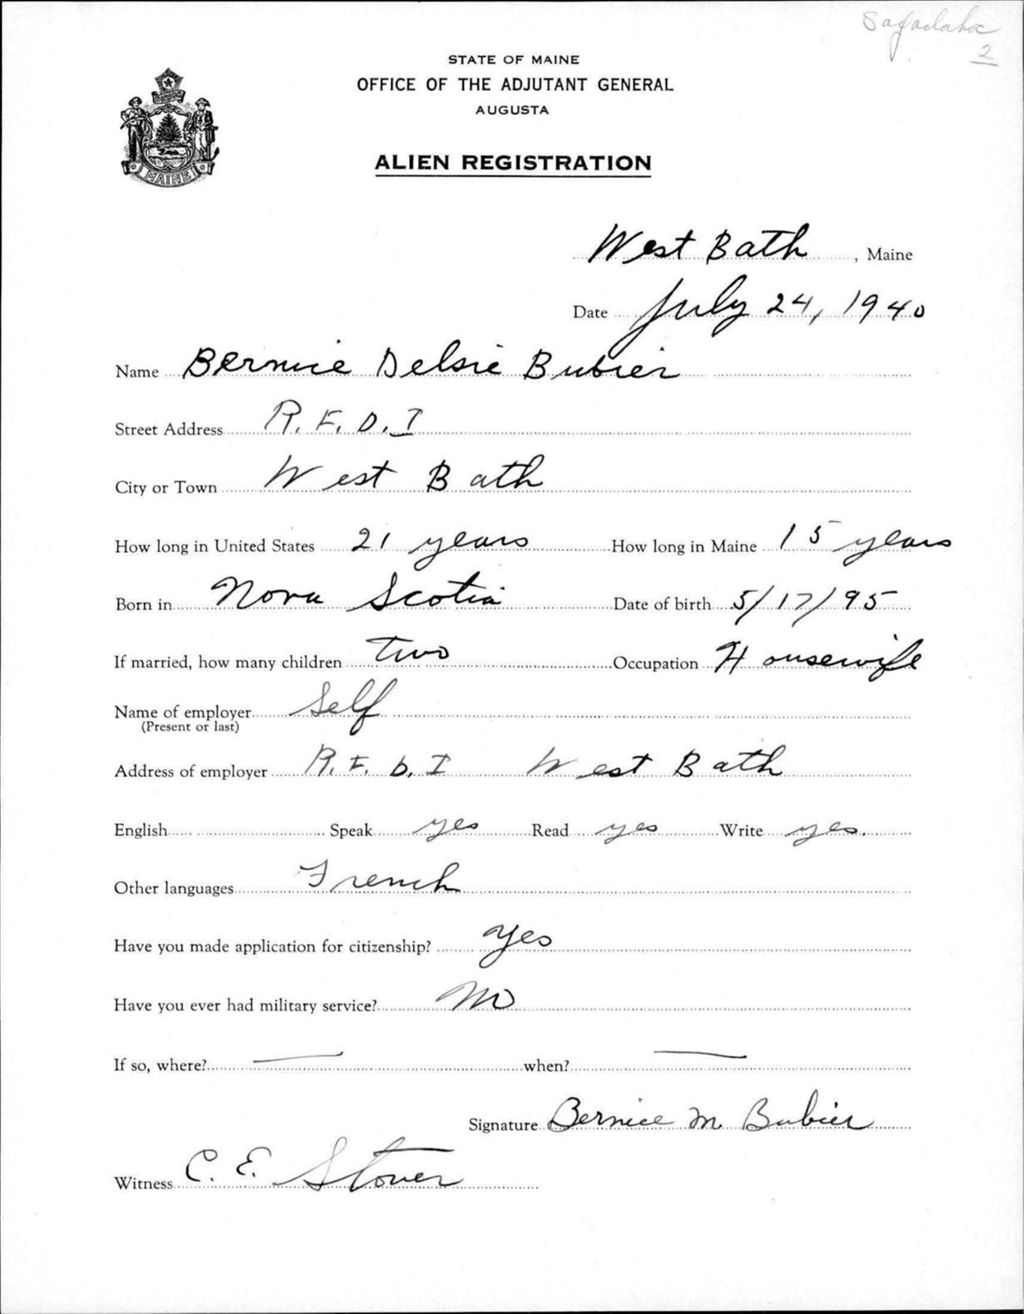 Sagadahoc
2
STATE OF MAINE
OFFICE OF THE ADJUTANT GENERAL
AUGUSTA
ALIEN REGISTRATION
MAINE
West Bath, Maine
Date July 24, 1940
Name Bernice Delsie Bubier
Street Address R. F. D. I
City or Town West Bath
How long in United States 21 years How long in Maine 15 years
Born in Nova Scotia Date of birth 5/17/95
If married, how many children two Occupation Housewife
Name of employer Self
(Present or last)
Address of employer R. F. D. I West Bath
English Speak yes Read yes Write yes.
Other languages French
Have you made application for citizenship? Yes
Have you ever had military service? No
If so, where? — when? —
Signature Bernice M Bubier
Witness C. E. Stover